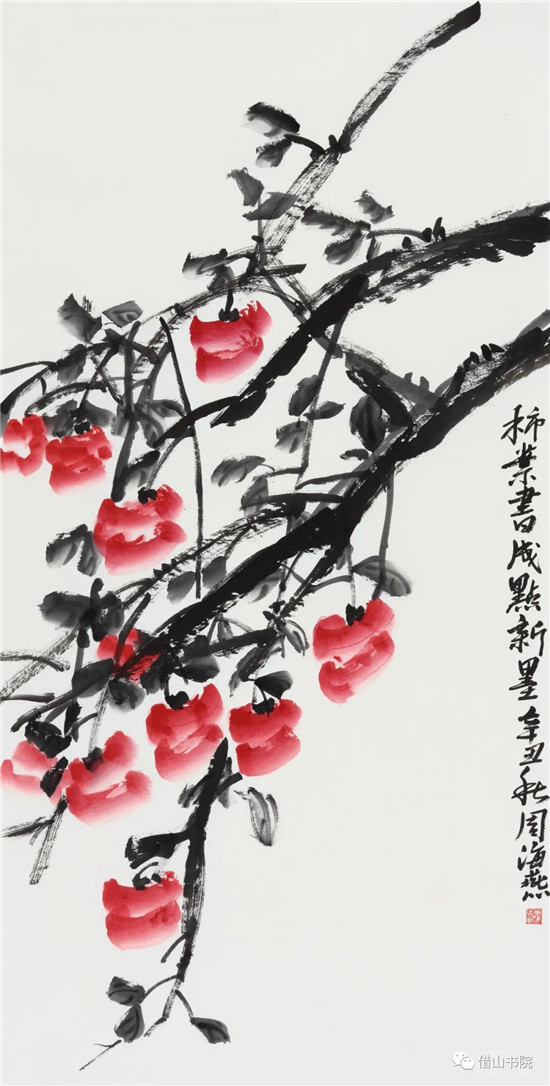 柿葉書成點新墨辛丑秋周海燕
借山书院